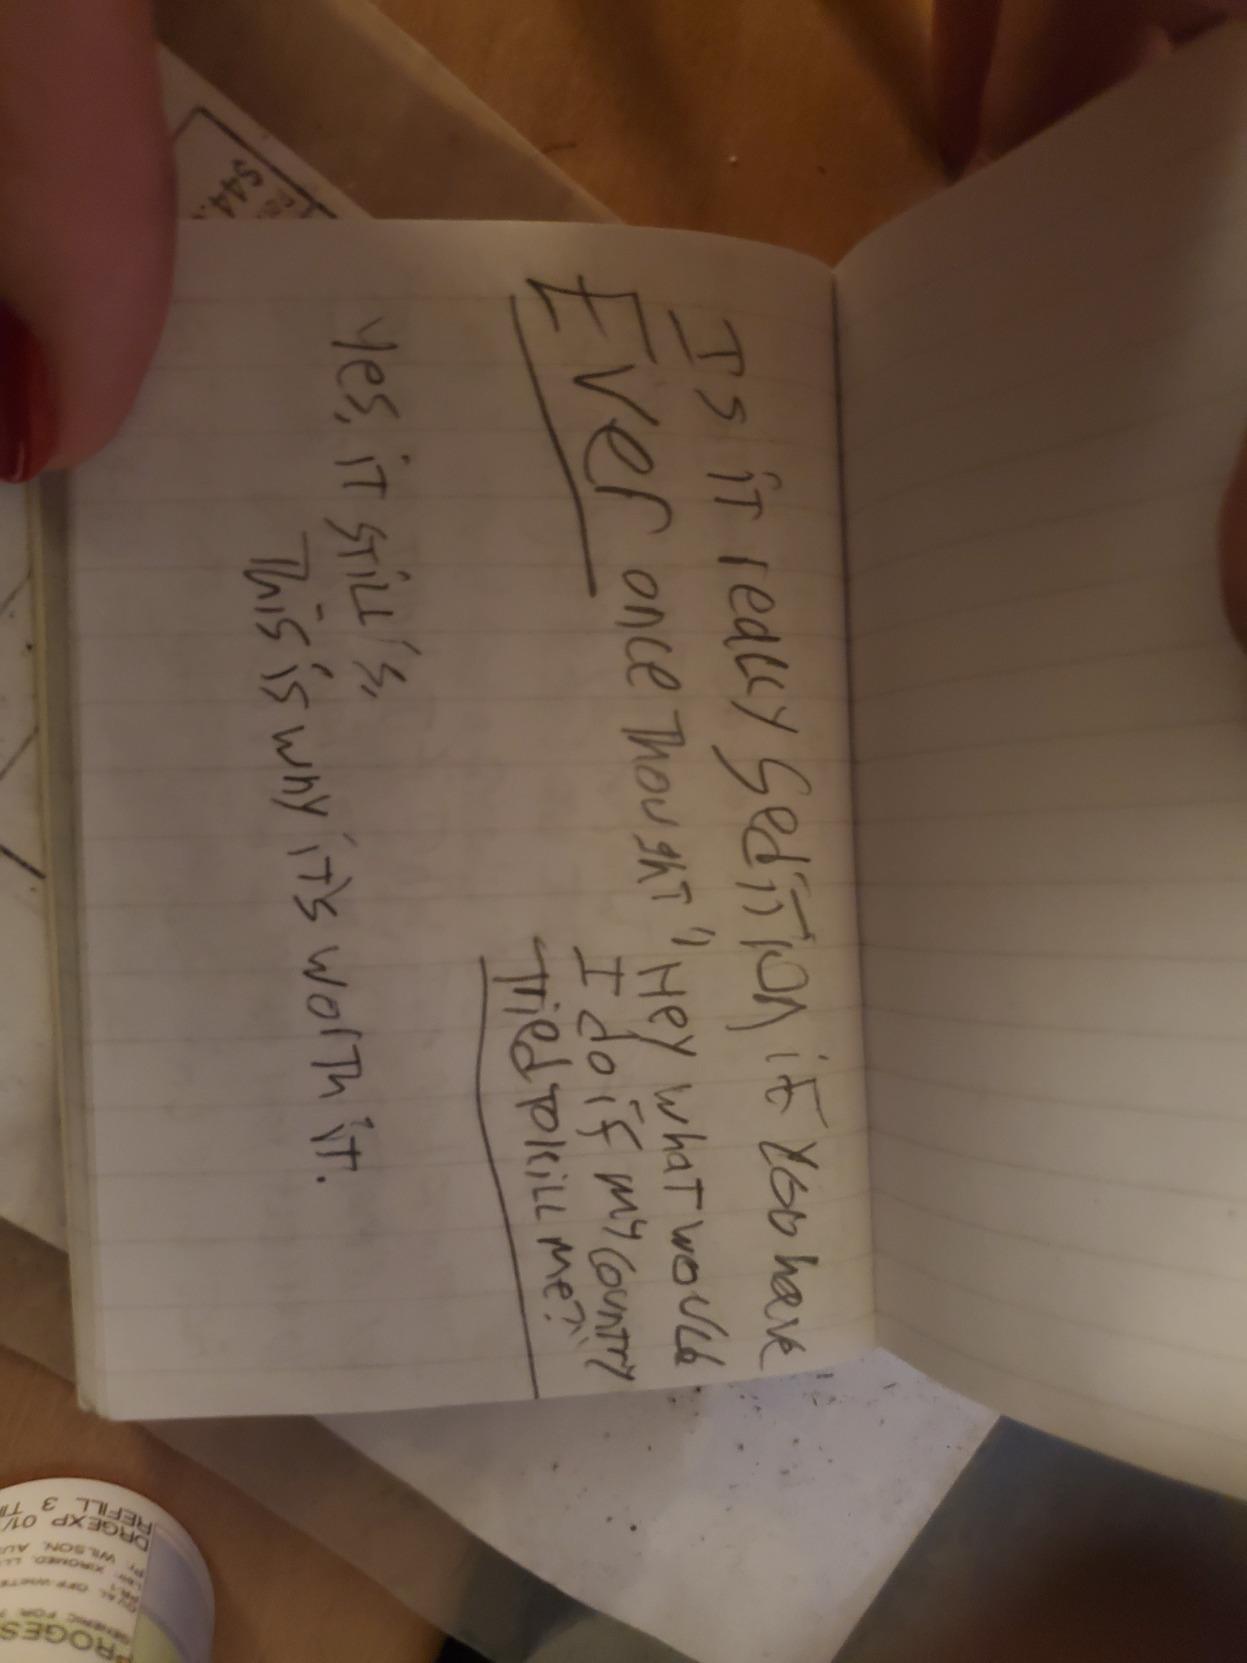 Is it really sedition, if you have
Ever once thought "Hey what would
I do if my country
tried to kill me?"
Yes, it still is,
This is why it's worth it.
$44.
REFILL 3
DRGEXP 01/
WILSON,
OFF-WHITE
GENERIC FOR
PROGES